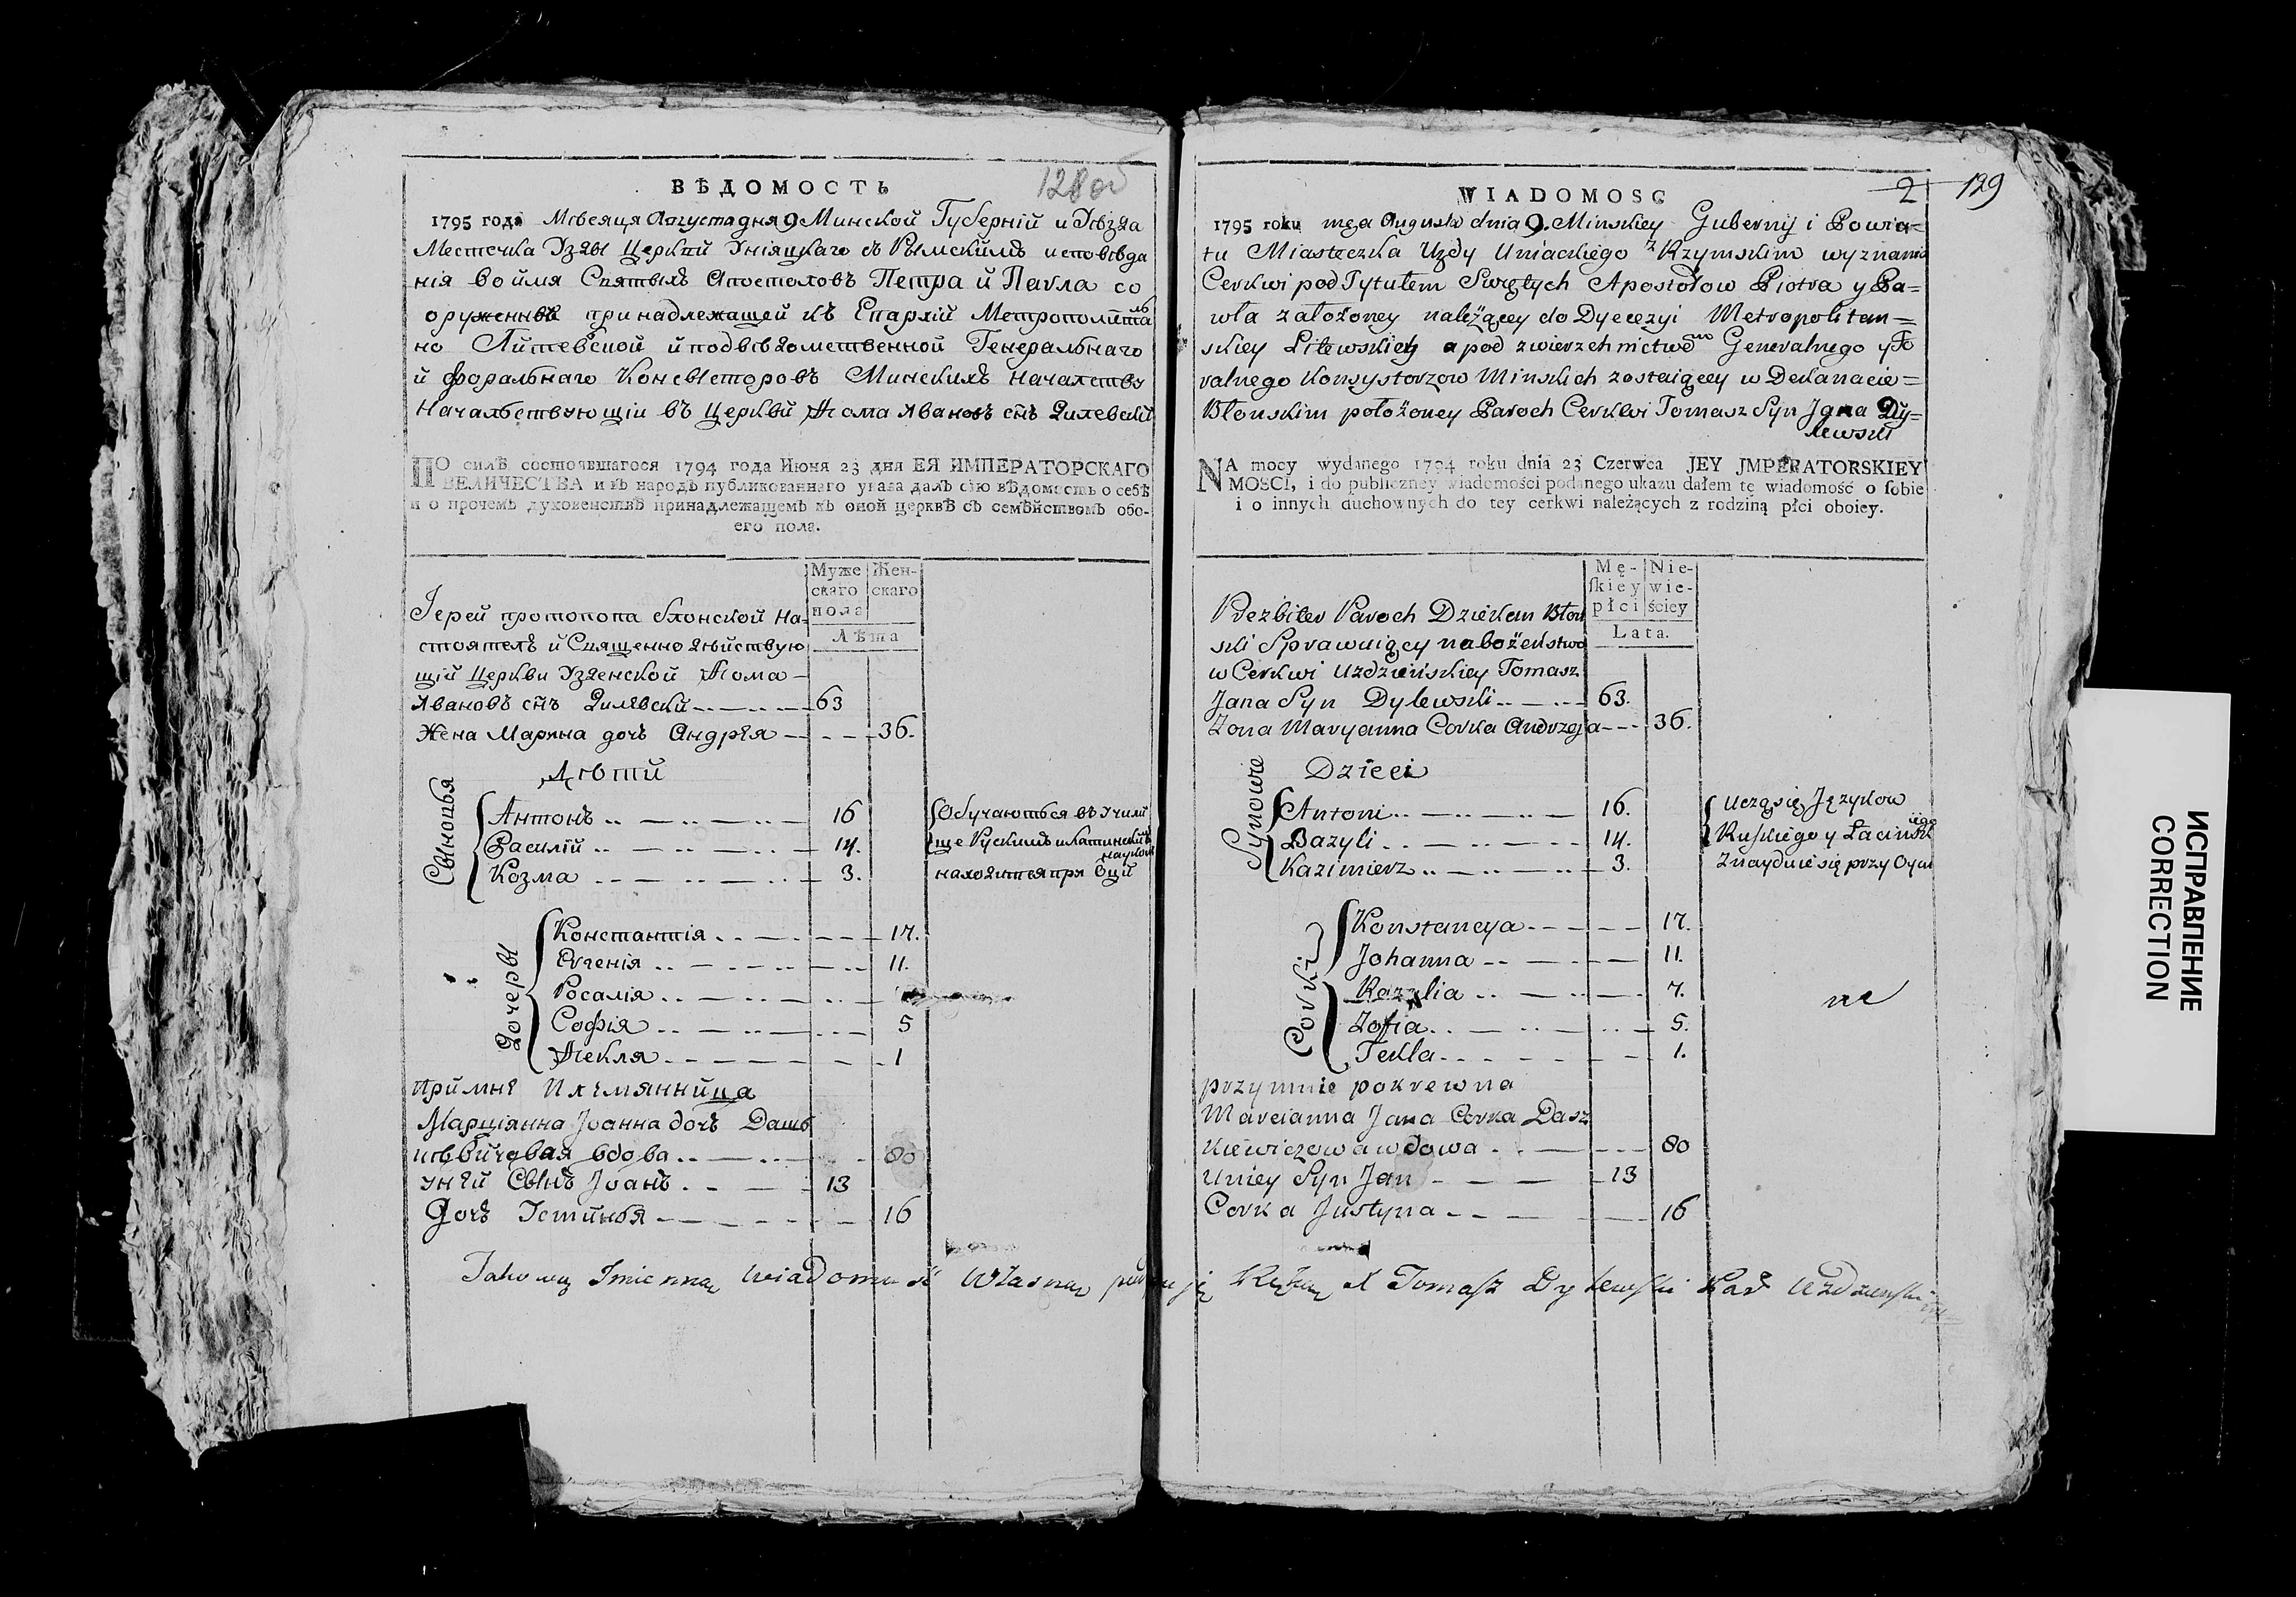 ВѢДОМОСТЬ
128об
1795 года Мѣсяця Августа дня 9 Минской Губерній и Уѣзда
Местечка Узды Церквй Уніяцкаго съ Рымскимъ исповѣда
нія во ймя Святыхъ Апостоловъ Петра й Павла со
оруженнѣ принадлежащей къ Епархій Метрополита
но Литевской й подвѣдомственной Генеральнаго
й форальнаго Консысторовъ Минскихъ Началству
Начальствующій въ Церквй Тома Ивановъ снъ Дилевскій
ПО силѣ состоявшагося 1794 года Июня 23 дня ЕЯ ИМПЕРАТОРСКАГО
ВЕЛИЧЕСТВА и въ народъ публикованнаго указа далъ сію вѣдомость о себѣ
и о прочемъ духовенствѣ принадлежащемъ къ оной церквѣ съ семѣйствомъ обо-
его пола.
Муже Жен-
скаго скаго
пола
Лѣта
Іерей протопопа блонской На-
стоятель й Священно дѣйствую
щій Церкви Узденской Тома
Ивановъ снъ Дилевскй 63
Жена Марина дочъ Андрея 36.
Дѣти
Сыновья
Антонъ 16 Обучаються въ Училй
Василій 14. ще Рускимъ и Латинскимъ
наукамъ
Козма 3. находитъся при Оцй
Дочеры
Констанція 17.
Евгенія 11.
Росалія
Софія 5
Текля 1
прй мнѣ Племяннйца
Марціянна Іоанна дочъ Даш
кѣвйчовая вдова 80
у нѣй Сынъ Іоанъ 13
Дочъ Істйноя 16
WIADOMOSC
2 129
1795 roku męca Augusta dnia 9. Minskiey Gubernij i Powia=
tu Miasteczka Uzdy Uniackiego z Rzymskim wyznania
Cerkwi pod Tytułem Swętych Apostołow Piotra y Pa=
wła założoney należącey do Dyecezyi Metropolitan=
skiey Litewskiey a pod zwierzchnictwem Generalnego y Fo
ralnego Konsystorzow Minskich zostaiącey w Dekanacie=
Błonskim położoney Paroch Cerkwi Tomasz Syn Jana Dy=
lewski
NA mocy wydanego 1794 roku dnia 23 Czerwca JEY JMPERATORSKIEY
MOSCI, i do publiczney wiadomości podanego ukazu dałem tę wiadomość o sobie
i o innych duchownych do tey cerkwi należących z rodziną płci oboiey.
Mę- Nie-
skiey wie-
płci ściey
Lata.
Prezbiter Paroch Dziekan Błon
ski Sprawuiący nabożeństwo
w Cerkwi Uzdzieńskiey Tomasz
Jana Syn Dylewski 63.
Zona Maryanna Corka Andrzeja 36.
Dzieci
Synowie
Antoni 16. Uczą się Języków
Bazyli 14. Ruskiego y Łacińskiego
Kazimierz 3. Znayduie się przy Oycu
Corki
Konstancya 17.
Johanna 11.
Rozalia 7.
Zofia 5.
Tekla 1.
przy mnie pokrewna
Marcianna Jana Corka Dasz
kiewiczowa wdowa 80
U niey Syn Jan 13
Corka Justyna 16
Takową Imienną wiadomość Własną podpisuję Ręką X Tomasz Dylewski
ИСПРАВЛЕНИЕ
CORRECTION